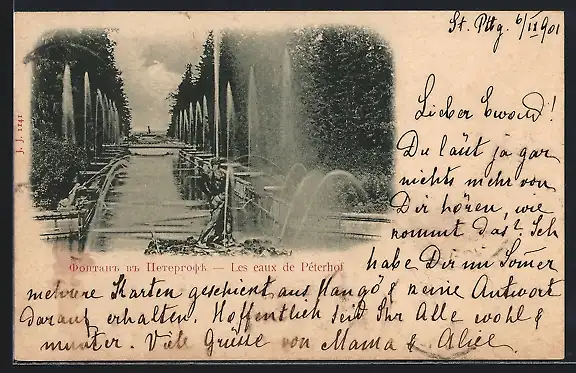 St. Ptbg. 6/IX 901
Lieber Ewald!
Du läut ja gar
nichts mehr von
Dir hören, wie
kommt das? Ich
J. J. 1241
Фонтанъ въ Петергофѣ — Les eaux de Péterhof
habe Dir im Somer
mehrere Karten geschickt aus Hangö & keine Antwort
darauf erhalten. Hoffentlich seit Ihr Alle wohl &
munter. Viele Grüsse von Mama & Alice.